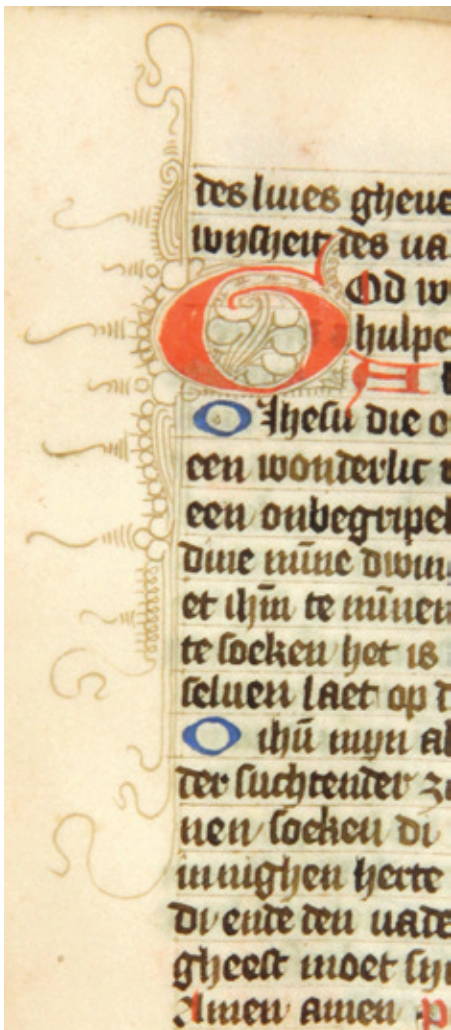 des liues gheue
wijsheit des va
God w
hulpe
O Jhesu die o
een wonderlic
een onbegripel
dine mīne dwin
et ihm̄ te mīnen
te soeken het is
seluen laet op d
O ihū mijn al
der suchtender z
nen soeken di
innighen herte
di ende den vade
gheest moet sijn
Amen amen p